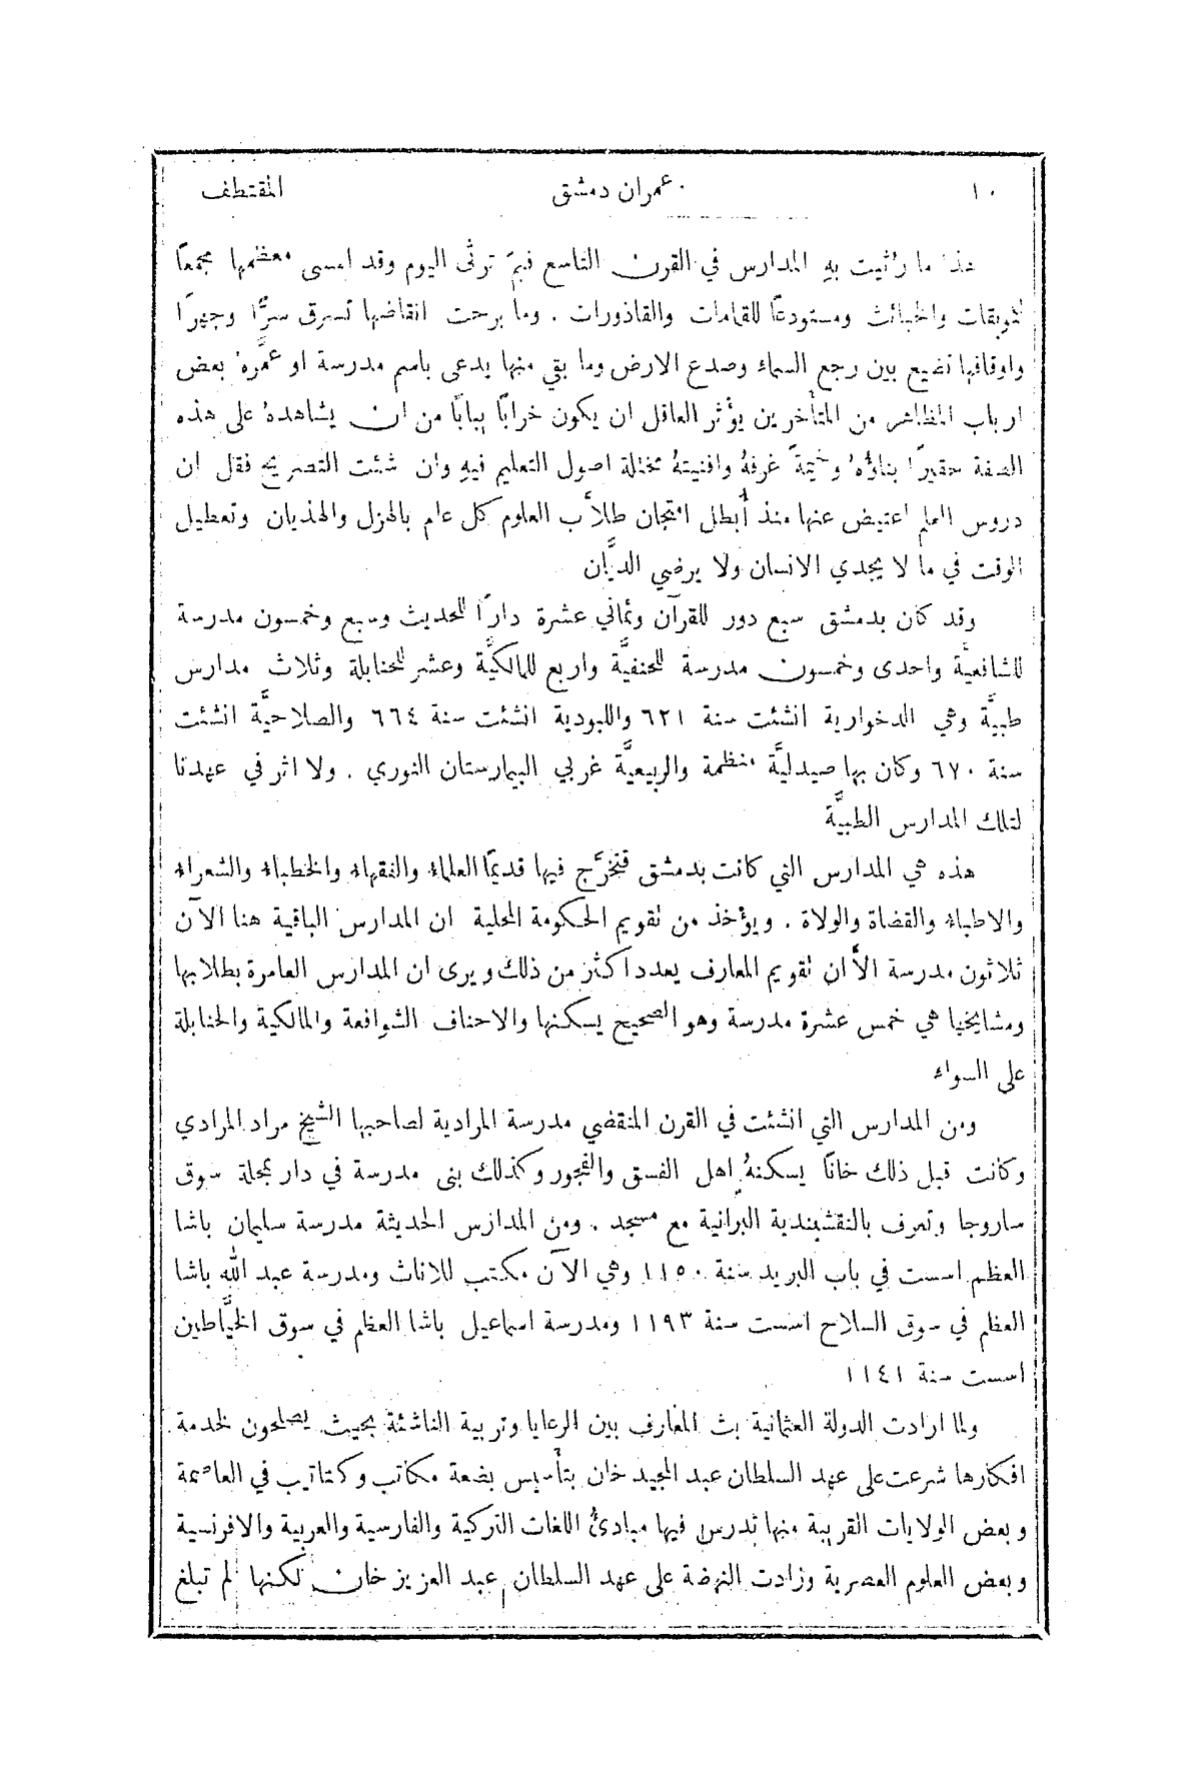 ١٠ عمران دمشق المقتطف
هذا ما رُثيت بهِ المدارس في القرن التاسع فبمَ ترثَّى اليوم وقد امسى معظمها مجمعًا
للموبقات والخبائث ومستودعًا للقمامات والقاذورات . وما برحت انقاضها تسرق سرًّا وجهرًا
واوقافها تضيع بين رجع السماء وصدع الارض وما بقي منها يدعى باسم مدرسة او عمَّرهُ بعض
ارباب المظاهر من المتأخرين يؤثر العاقل ان يكون خرابًا يبابًا من ان يشاهدهُ على هذه
الصفة حقيرًا بناؤُهُ وخيمةً غرفهُ وافنيتهُ مختلة اصول التعليم فيهِ وان شئت التصريح فقل ان
دروس العلم اعتيض عنها منذ أُبطل امتحان طلاَّب العلوم كل عام بالهزل والهذيان وتعطيل
الوقت في ما لا يجدي الانسان ولا يرضي الديَّان
وقد كان بدمشق سبع دور للقرآن وثماني عشرة دارًا للحديث وسبع وخمسون مدرسة
للشافعيَّة واحدى وخمسون مدرسة للحنفيَّة واربع للمالكيَّة وعشر للحنابلة وثلاث مدارس
طبيَّة وهي الدخوارية انشئت سنة ٦٢١ واللبودية انشئت سنة ٦٦٤ والصلاحيَّة انشئت
سنة ٦٧٠ وكان بها صيدليَّة منظمة والربيعيَّة غربي البيمارستان النوري . ولا اثر في عهدنا
لتلك المدارس الطبيَّة
هذه هي المدارس التي كانت بدمشق فتخرَّج فيها قديمًا العلماء والفقهاء والخطباء والشعراء
والاطباء والقضاة والولاة . ويؤخذ من تقويم الحكومة المحلية ان المدارس الباقية هنا الآن
ثلاثون مدرسة الاَّ ان تقويم المعارف يعدد اكثر من ذلك ويرى ان المدارس العامرة بطلابها
ومشايخها هي خمس عشرة مدرسة وهو الصحيح يسكنها والاحناف الشوافعة والمالكية والحنابلة
على السواء
ومن المدارس التي انشئت في القرن المنقضي مدرسة المرادية لصاحبها الشيخ مراد المرادي
وكانت قبل ذلك خانًا يسكنهُ اهل الفسق والفجور وكذلك بنى مدرسة في دار بمحلة سوق
ساروجا وتعرف بالنقشبندية البرانية مع مسجد . ومن المدارس الحديثة مدرسة سليمان باشا
العظم اسست في باب البريد سنة ١١٥٠ وهي الآن مكتب للاناث ومدرسة عبد الله باشا
العظم في سوق السلاح اسست سنة ١١٩٣ ومدرسة اسماعيل باشا العظم في سوق الخيَّاطين
اسست سنة ١١٤١
ولما ارادت الدولة العثمانية بث المعارف بين الرعايا وتربية الناشئة بحيث يصلحون لخدمة
افكارها شرعت على عهد السلطان عبد المجيد خان بتأسيس بضعة مكاتب وكتاتيب في العاصمة
وبعض الولايات القريبة منها تدرس فيها مبادئ اللغات التركية والفارسية والعربية والافرنسية
وبعض العلوم العصرية وزادت النهضة على عهد السلطان عبد العزيز خان لكنها لم تبلغ